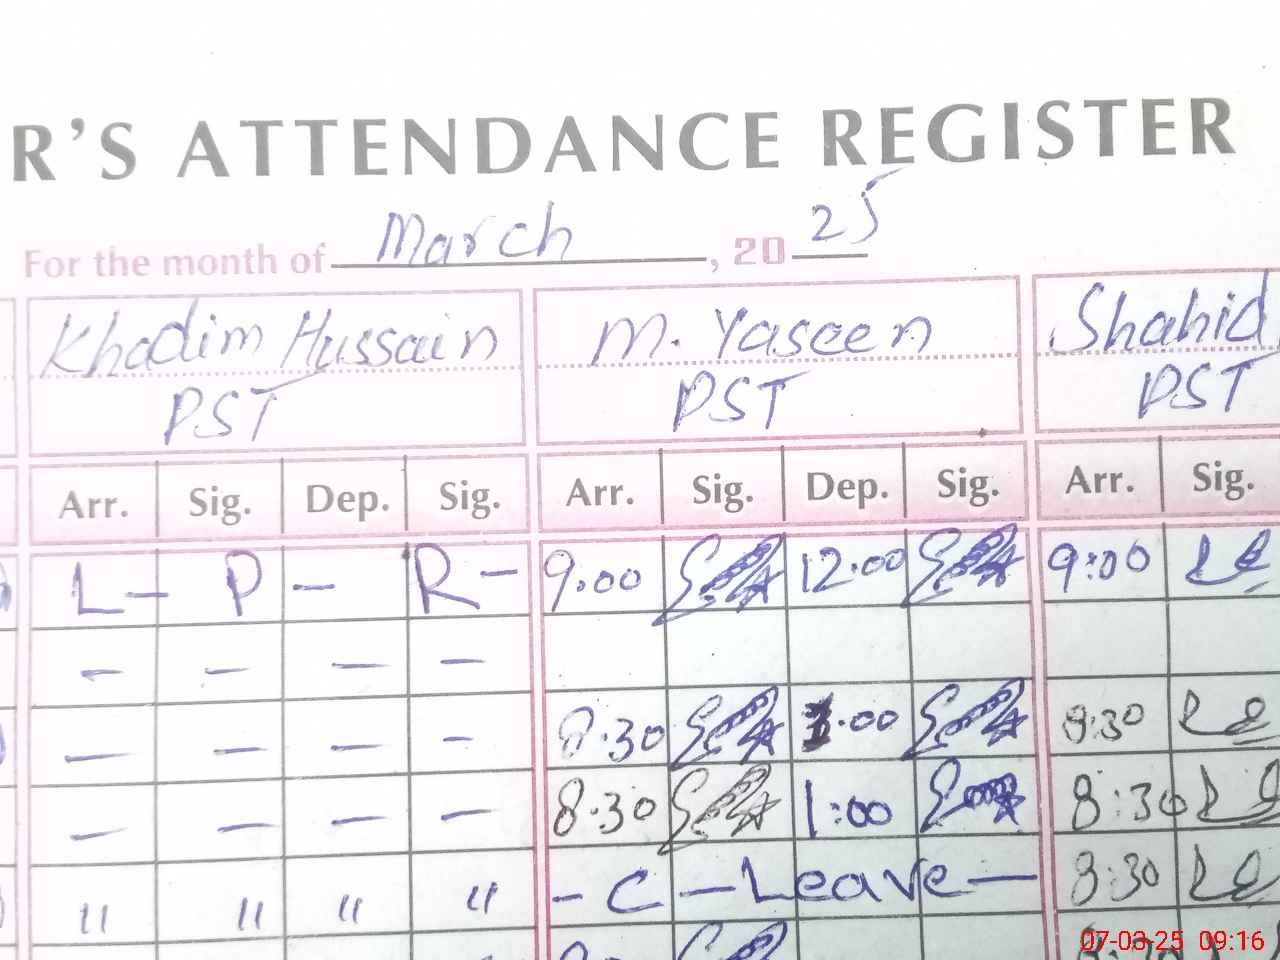 R'S ATTENDANCE REGISTER
For the month of March, 20 25
Khadim Hussain M. Yaseen Shahid
PST PST PST
Arr. Sig. Dep. Sig. Arr. Sig. Dep. Sig. Arr. Sig.
L - P - R - 9:00 12:00 9:00
- - - -
- - - - 8:30 1:00 8:30
- - - - 8:30 1:00 8:30
" " " " - C - Leave - 8:30
07-03-25 09:16